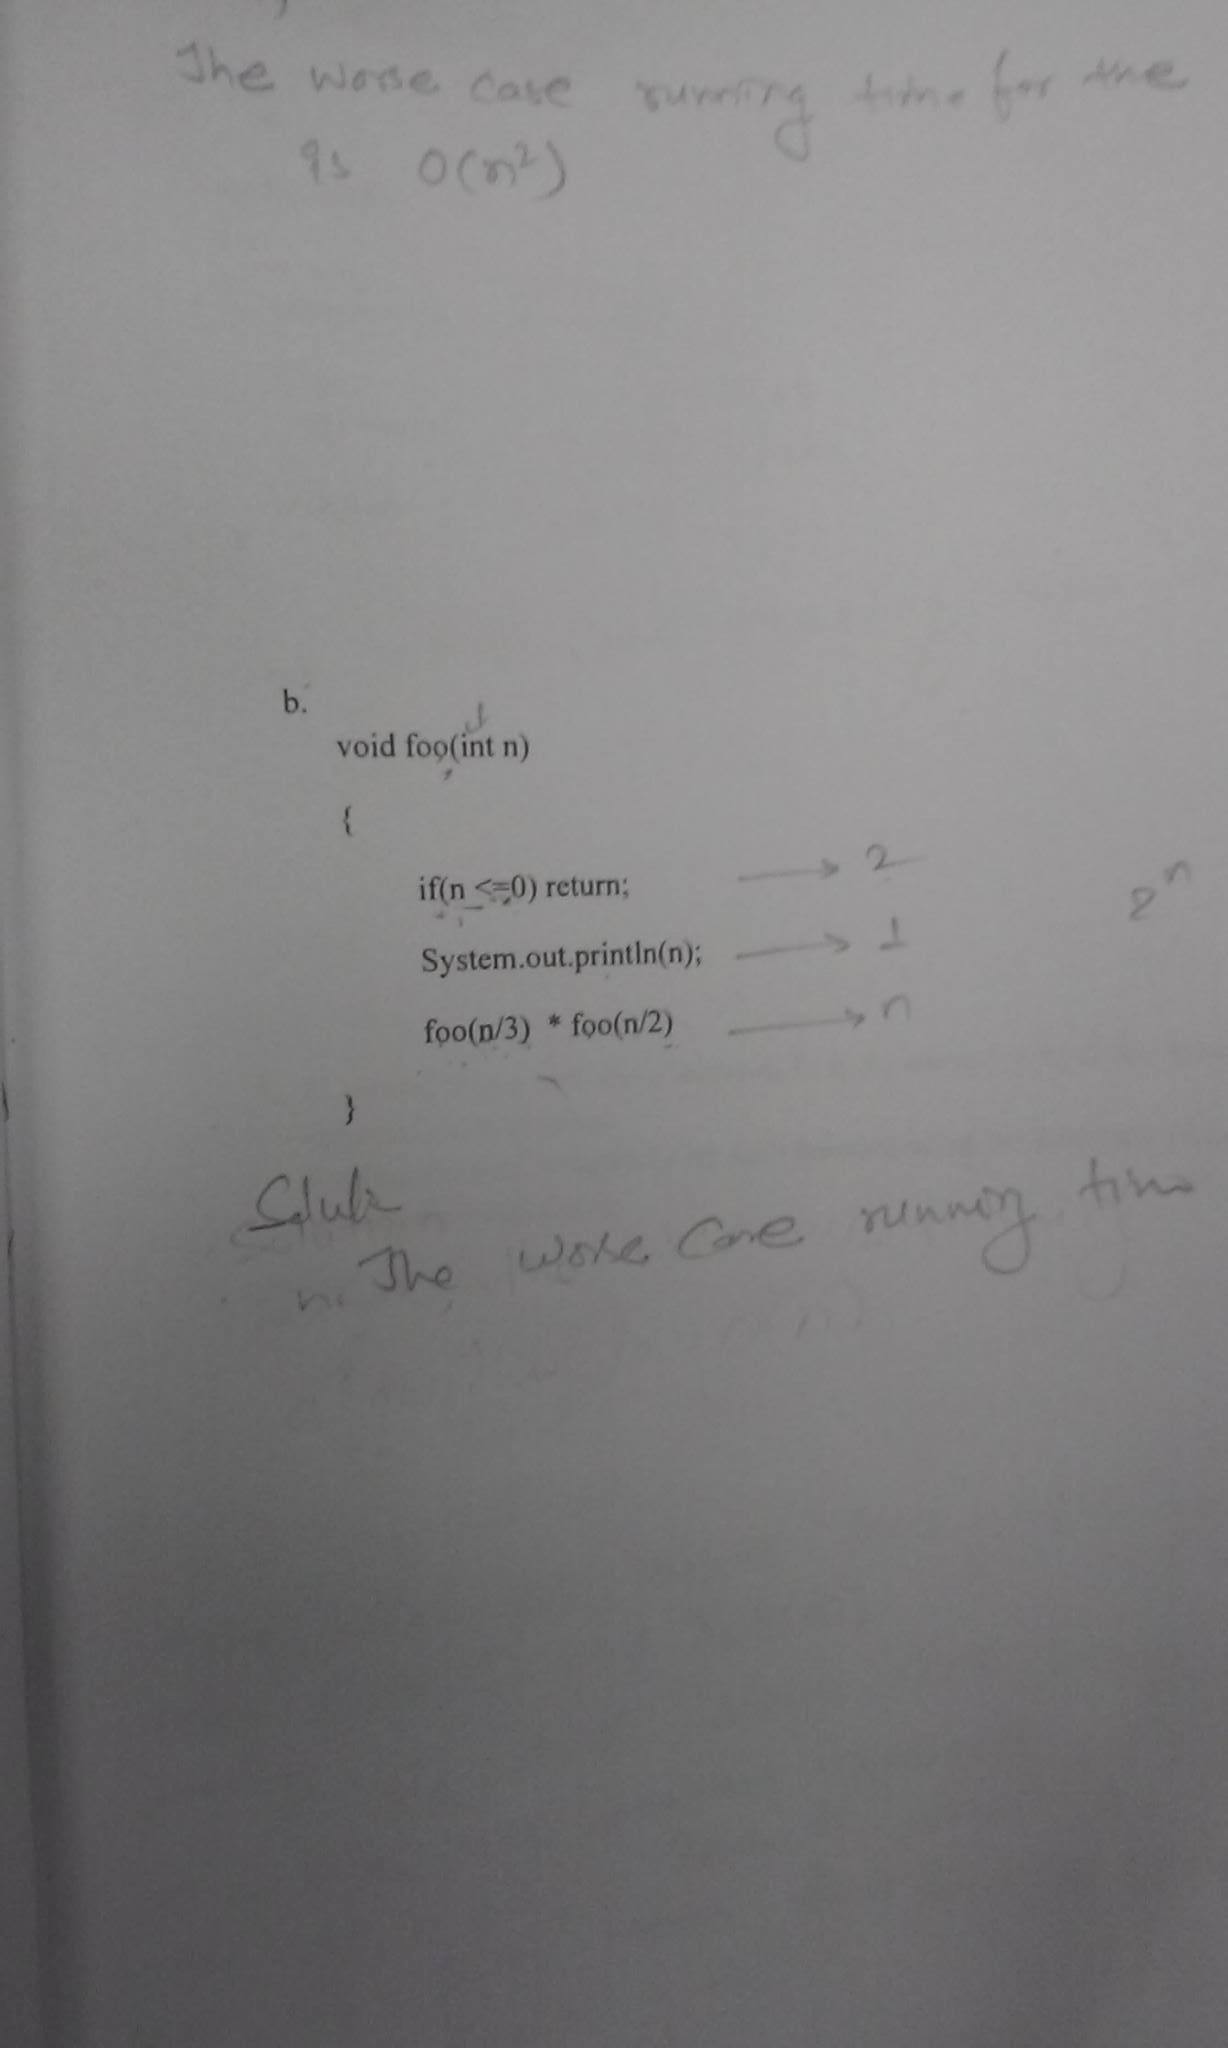 The worse case running time for the
is O(n²)
b.
void foo(int n)
{
if(n <=0) return; → 2
2ⁿ
System.out.println(n); → 1
foo(n/3) * foo(n/2) → n
}
The worse case running time